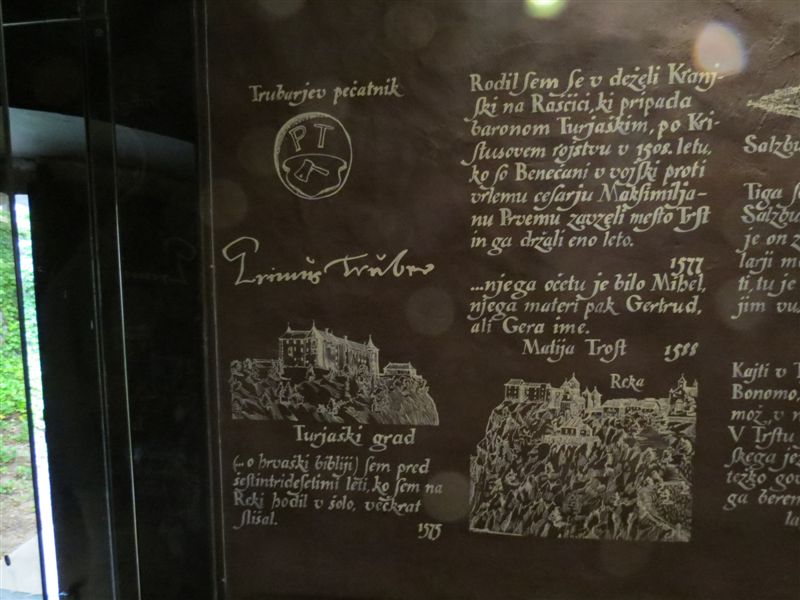 Trubarjev pečatnik
PT
Primus Truber
Turjaški grad
(...o hrvaški bibliji) sem pred
šestintridesetimi leti, ko sem na
Reki hodil v šolo, večkrat
slišal.
1575
Rodil sem se v deželi Kranj-
ski na Raščici, ki pripada
baronom Turjaškim, po Kri-
stusovem rojstvu v 1508. letu,
ko so Benečani v vojski proti
vrlemu cesarju Maksimilja-
nu Prvemu zavzeli mesto Trst
in ga držali eno leto.
1577
...njega očetu je bilo Mihel,
njega materi pak Gertrud,
ali Gera ime.
Matija Trost 1588
Reka
Salzbu
Tiga
Salzbu
je on
larji
ti, tu je
jim
Kajti v T
Bonomo,
mož, v
V Trstu
skega
težko gov
ga berem
la